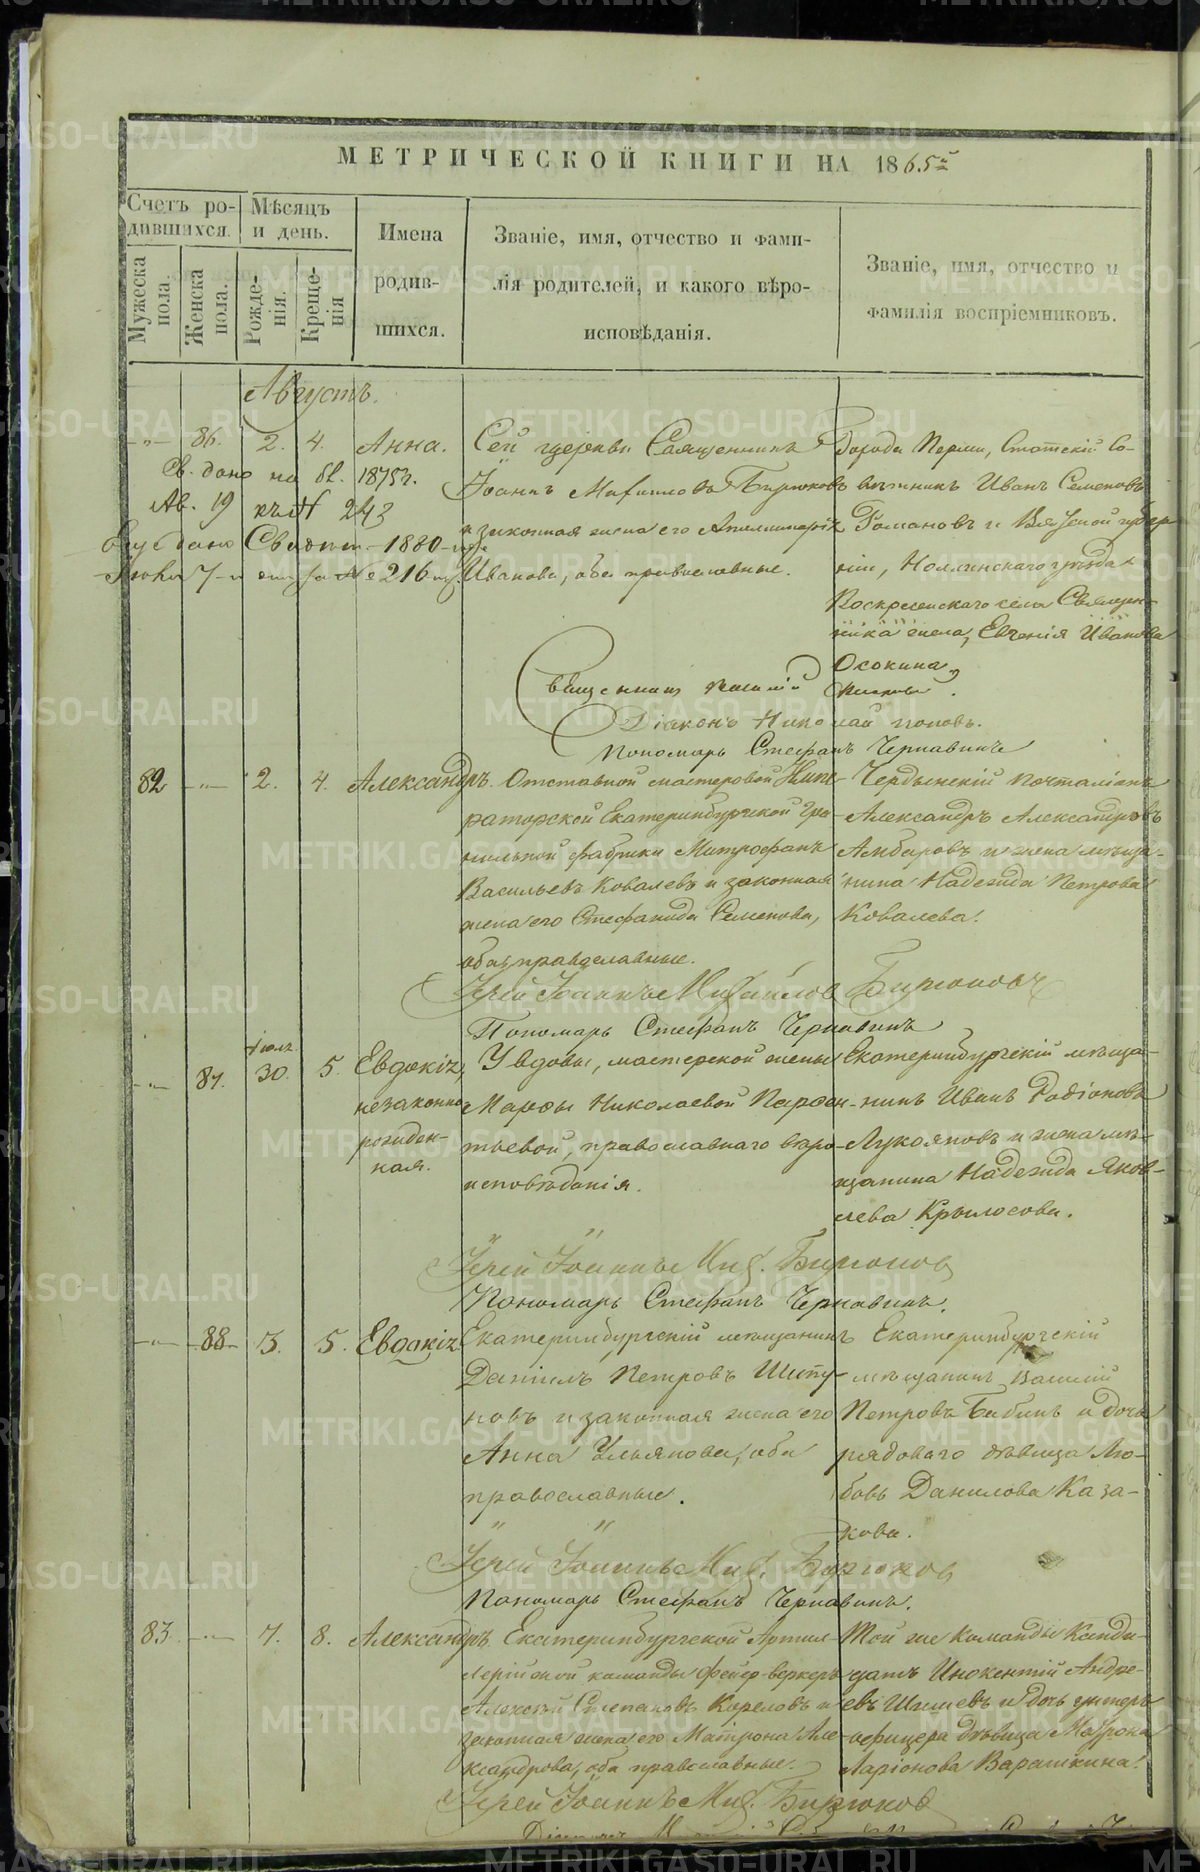 МЕТРИЧЕСКОЙ КНИГИ НА 1865й
Счетъ ро-
дившихся.
Мѣсяцъ
и день.
Мужеска
пола.
Женска
пола.
Рожде-
нія.
Креще-
нія
Имена
родив-
шихся.
Званіе, имя, отчество и фами-
лія родителей, и какого вѣро-
исповѣданія.
Званіе, имя, отчество и
фамилія воспріемниковъ.
Августъ.
86. 2. 4. Анна.
Св. дано на бл. 1875г.
Ав. 19 къ № 243
дано Свидѣт. 1880
7 за № 216
Сей церкви Священникъ
Іоаннъ Михаиловъ Бирюковъ
и законная жена его Аполлинарія
Иванова, оба православные.
Города Перми, Статскій Со-
вѣтникъ Иванъ Семеновъ
Романовъ и Вятской губер
ніи, Нолинскаго уѣзда
Воскресенскаго села Священ-
ника жена, Евгенія Иванова
Осокина.
Священникъ
Діаконъ Николай Поповъ.
Пономарь Стефанъ Чернавинъ
82 2. 4. Александръ.
Отставной мастеровой Импе-
раторской Екатеринбургской гра-
нильной фабрики Митрофанъ
Васильевъ Ковалевъ и законная
жена его Стефанида Семенова,
оба православные.
Чердынскій почталіонъ
Александръ Александровъ
Амбаровъ и жена мѣща-
нина Надежда Петрова
Ковалева.
Іерей Іоаннъ Михайлов Бирюковъ
Пономарь Стефанъ Чернавинъ
87. Іюля 30. 5. Евдокія,
незаконно
рожден-
ная.
У вдовы, мастерской жены
Марфы Николаевой Парфен-
тьевой, православнаго вѣро-
исповѣданія.
Екатеринбургскій мѣща-
нинъ Иванъ Родіоновъ
Лукояновъ и жена мѣ-
щанина Надежда Яков-
лева Крылосова.
Іерей Іоаннъ Мих. Бирюков
Пономарь Стефанъ Чернавинъ.
88 3. 5. Евдокія
Екатеринбургскій мѣщанинъ
Даніилъ Петровъ Шипу-
новъ и законная жена его
Анна Ульянова, оба
православные.
Екатеринбургскій
мѣщанинъ Василій
Петровъ Бабинъ и дочь
рядоваго дѣвица Лю-
бовь Данилова Каза-
кова.
Іерей Іоаннъ Мих. Бирюков
Пономарь Стефанъ Чернавинъ.
83. 7. 8. Александръ.
Екатеринбургской Артил-
лерійской команды фейер-веркеръ
Алексѣй Степановъ Кареловъ и
законная жена его Матрона Але-
ксандрова, оба православные.
Той же команды Канди-
датъ Инокентій Андре-
евъ Шишевъ и дочь унтеръ
офицера дѣвица Матрона
Ларіонова Варашкина.
Іерей Іоаннъ Мих. Бирюков